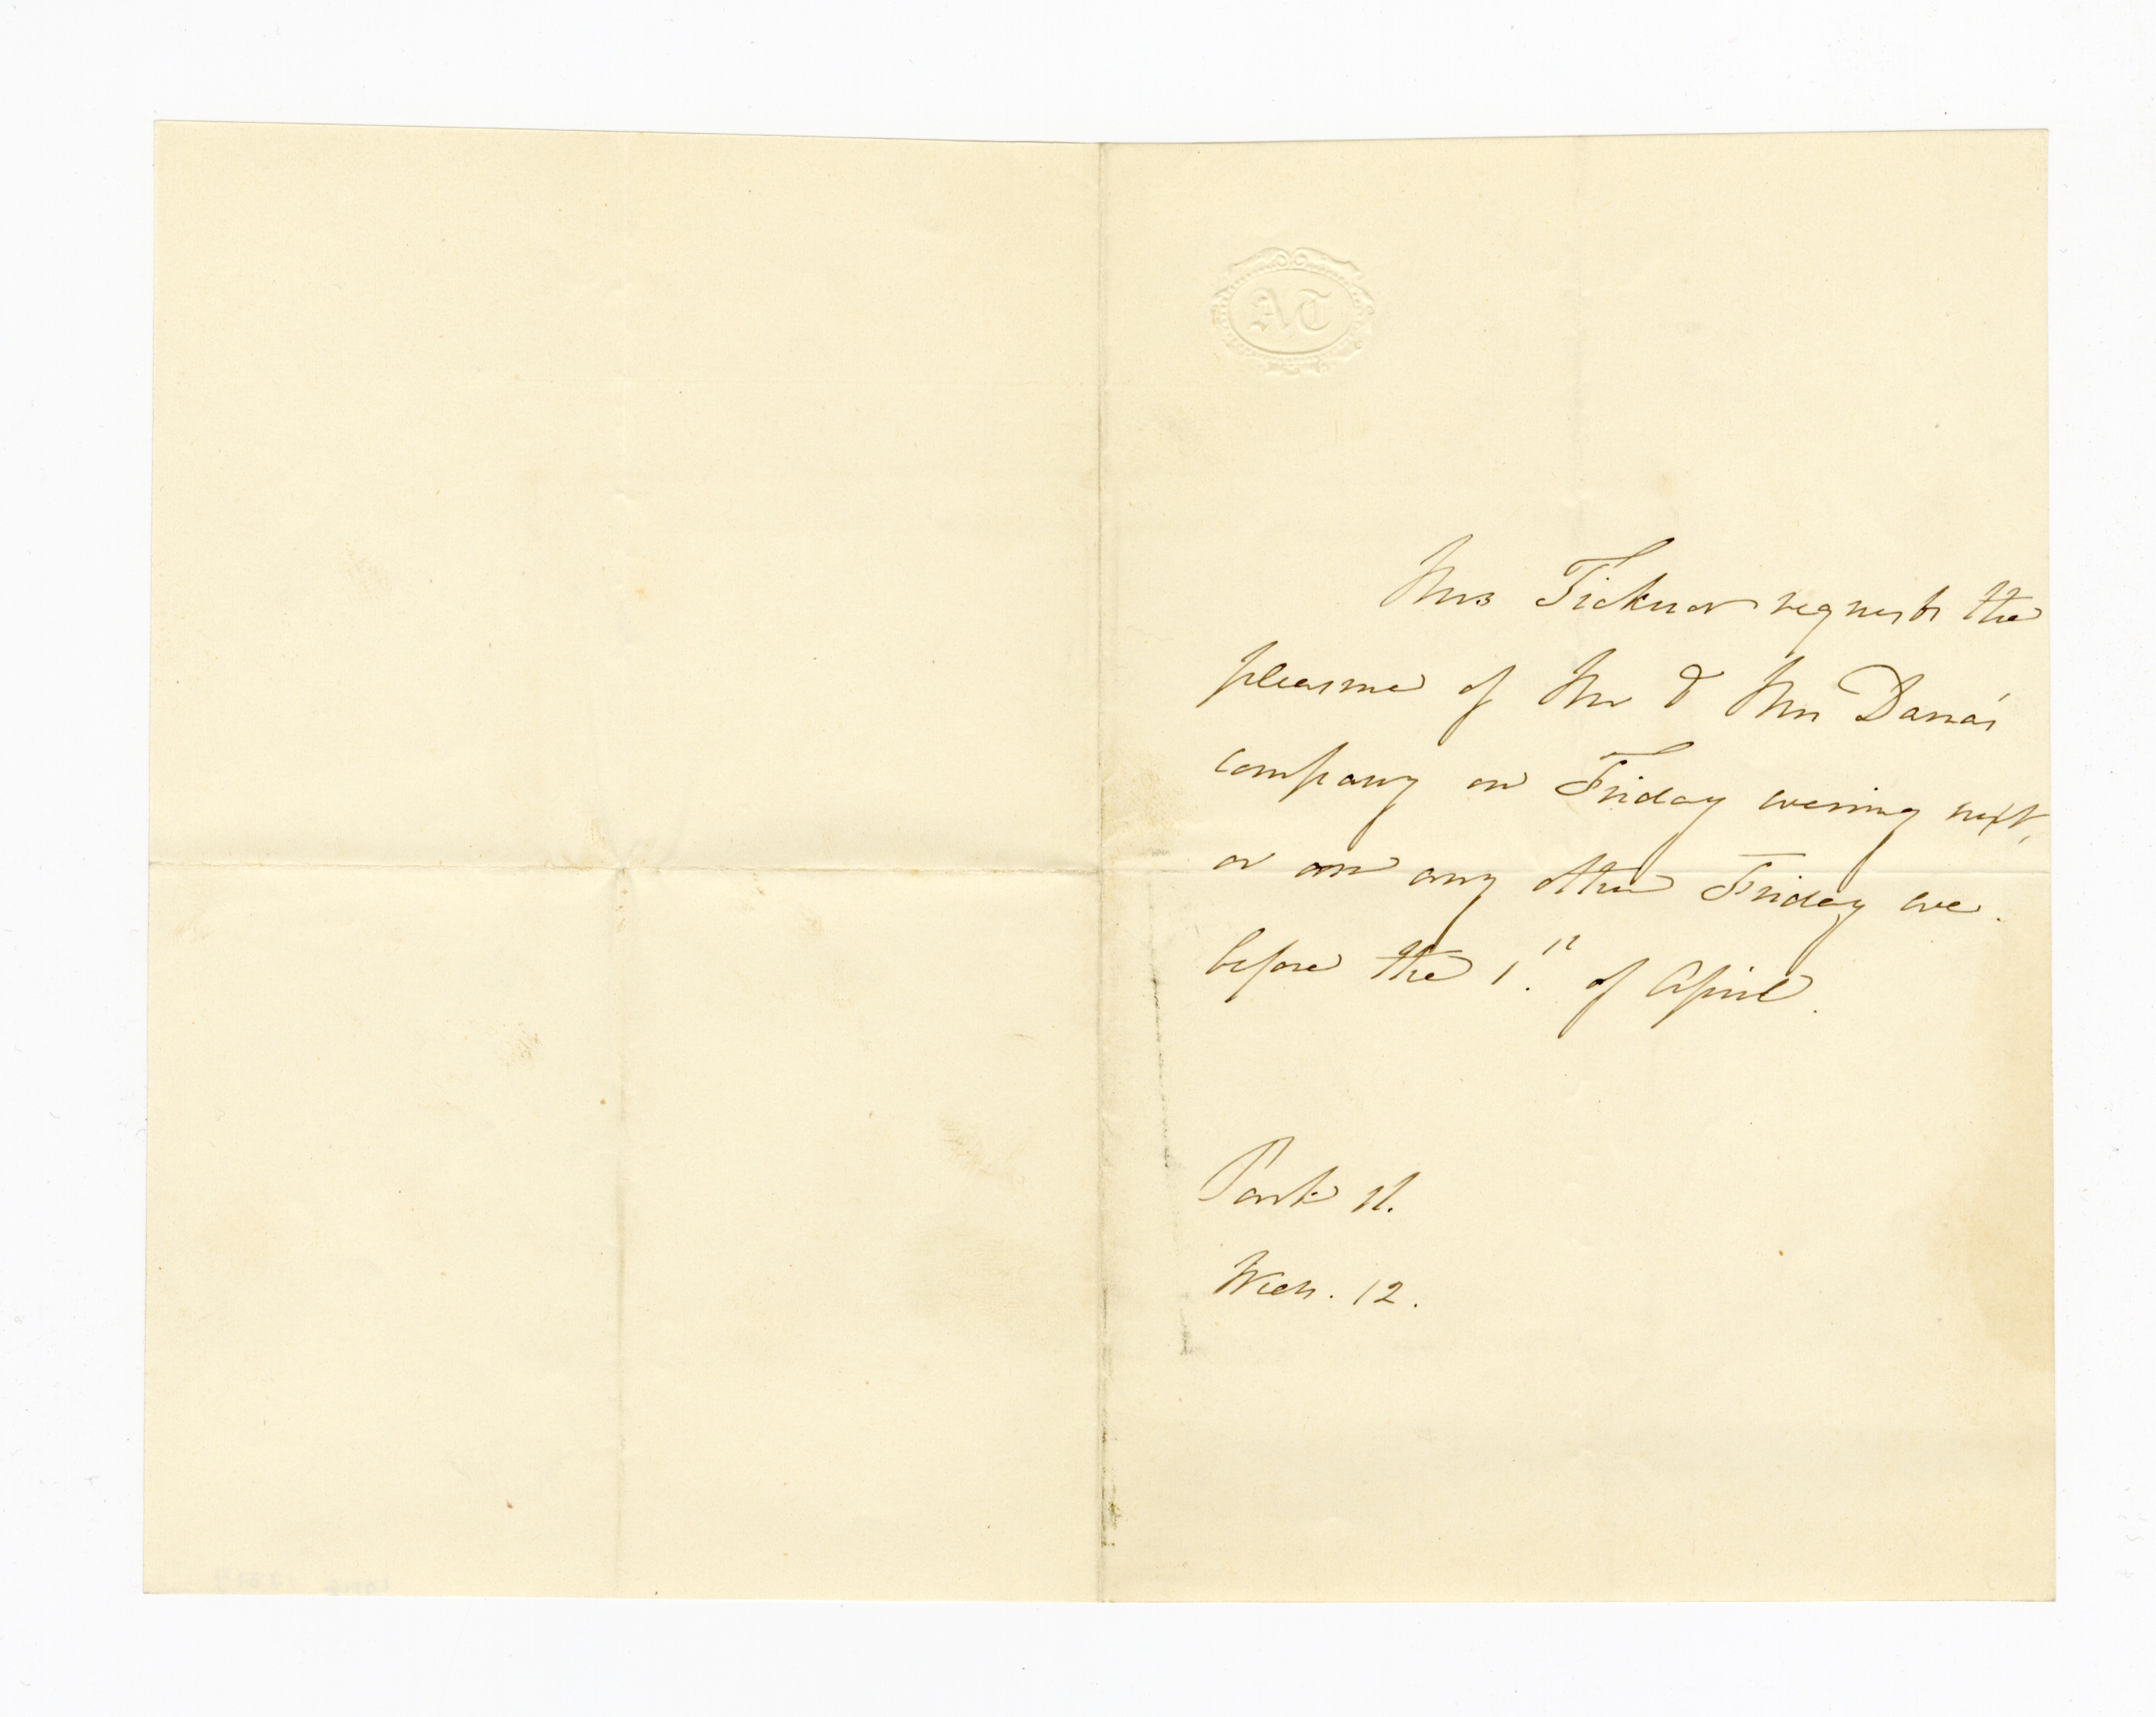 AT
Mrs Ticknor requests the
pleasure of Mr & Mrs Dana's
company on Friday evening next,
or on any other Friday eve.
before the 1.st of April.
Park st.
Wed. 12.